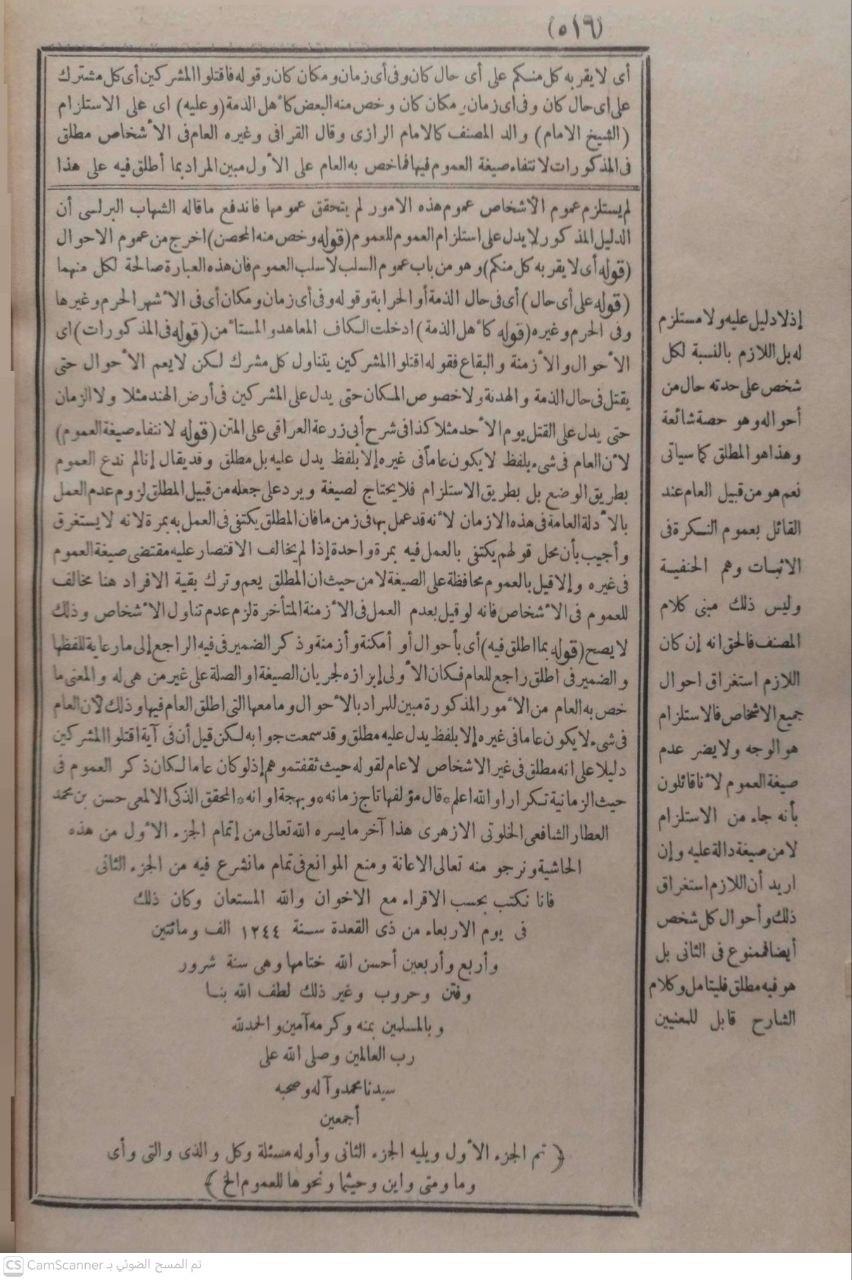 (٥١٦)
أى لا يقربه كل منكم على أى حال كان وفى أى زمان ومكان كان وقوله فاقتلوا المشركين أى كل مشترك
على أى حال كان وفى أى زمان ومكان كان وخص منه البعض كأهل الذمة (وعليه) اى على الاستلزام
(الشيخ الامام) والد المصنف كالامام الرازى وقال القرافى وغيره العام فى الأشخاص مطلق
فى المذكورات لا نتفاء صيغة العموم فيها فما خص به العام على الأول مبين المراد بما أطلق فيه على هذا
لم يستلزم عموم الأشخاص عموم هذه الامور لم يتحقق عمومها فاندفع ما قاله الشهاب البرلسى أن
الدليل المذكور لا يدل على استلزام العموم للعموم (قوله وخص منه المحصن) اخرج من عموم الاحوال
(قوله أى لا يقربه كل منكم) وهو من باب عموم السلب لا سلب العموم فان هذه العبارة صالحة لكل منهما
(قوله على أى حال) أى فى حال الذمة أو الحرابة وقوله وفى أى زمان ومكان أى فى الأشهر الحرم وغيرها
وفى الحرم وغيره (قوله كأهل الذمة) ادخلت الكاف المعاهد والمستأمن (قوله فى المذكورات) اى
الأحوال والأزمنة والبقاع فقوله اقتلوا المشركين يتناول كل مشرك لكن لا يعم الأحوال حتى
يقتل فى حال الذمة والهدنة ولا خصوص المكان حتى يدل على المشركين فى أرض الهند مثلا ولا الزمان
حتى يدل على القتل يوم الأحد مثلا كذا فى شرح أبى زرعة العراقى على المتن (قوله لا نتفاء صيغة العموم)
لأن العام فى شىء بلفظ لا يكون عاماً فى غيره إلا بلفظ يدل عليه بل مطلق وقد يقال إنا لم ندع العموم
بطريق الوضع بل بطريق الاستلزام فلا يحتاج لصيغة ويرد على جعله من قبيل المطلق لزوم عدم العمل
بالأدلة العامة فى هذه الازمان لأنه قد عمل بها فى زمن ما فان المطلق يكتفى فى العمل به بمرة لانه لا يستغرق
وأجيب بأن محل قولهم يكتفى بالعمل فيه بمرة واحدة إذا لم يخالف الاقتصار عليه مقتضى صيغة العموم
فى غيره وإلا قيل بالعموم محافظة على الصيغة لا من حيث ان المطلق يعم وترك بقية الافراد هنا مخالف
للعموم فى الأشخاص فانه لو قيل بعدم العمل فى الأزمنة المتأخرة لزم عدم تناول الأشخاص وذلك
لا يصح (قوله بما اطلق فيه) أى بأحوال أو أمكنة وأزمنة وذكر الضمير فى فيه الراجع إلى ما رعاية للفظها
والضمير فى اطلق راجع للعام فكان الأولى إبرازه لجريان الصيغة او الصلة على غير من هى له والمعنى ما
خص به العام من الأمور المذكورة مبين للمراد بالأحوال وما معها التى اطلق العام فيها وذلك لأن العام
فى شىء لا يكون عاما فى غيره إلا بلفظ يدل عليه مطلق وقد سمعت جوابه لكن قيل أن فى آية اقتلوا المشركين
دليلا على انه مطلق فى غير الاشخاص لا عام لقوله حيث ثقفتموهم إذ لو كان عاما لكان ذكر العموم فى
حيث الزمانية تكرارا والله اعلم * قال مؤلفها تاج زمانه * وبهجة اوانه * المحقق الذكى الالمعى حسن بن محمد
العطار الشافعى الخلوتى الازهرى هذا آخر ما يسره الله تعالى من إتمام الجزء الأول من هذه
الحاشية ونرجو منه تعالى الاعانة ومنع الموانع فى تمام ما نشرع فيه من الجزء الثانى
فانا نكتب بحسب الاقراء مع الاخوان والله المستعان وكان ذلك
فى يوم الاربعاء من ذى القعدة سنة ١٢٤٤ الف ومائتين
وأربع وأربعين أحسن الله ختامها وهى سنة شرور
وفتن وحروب وغير ذلك لطف الله بنا
وبالمسلمين بمنه وكرمه آمين والحمد لله
رب العالمين وصلى الله على
سيدنا محمد وآله وصحبه
أجمعين
﴿ تم الجزء الأول ويليه الجزء الثانى وأوله مسئلة وكل والذى والتى وأى
وما ومتى واين وحيثما ونحوها للعموم الخ ﴾
إذ لا دليل عليه ولا مستلزم
له بل اللازم بالنسبة لكل
شخص على حدته حال من
أحواله وهو حصة شائعة
وهذا هو المطلق كما سياتى
نعم هو من قبيل العام عند
القائل بعموم النكرة فى
الاثبات وهم الحنفية
وليس ذلك مبنى كلام
المصنف فالحق انه إن كان
اللازم استغراق احوال
جميع الاشخاص فالاستلزام
هو الوجه ولا يضر عدم
صيغة العموم لأنا قائلون
بأنه جاء من الاستلزام
لا من صيغة دالة عليه وإن
اريد أن اللازم استغراق
ذلك وأحوال كل شخص
أيضا فممنوع فى الثانى بل
هو فيه مطلق فليتامل وكلام
الشارح قابل للمعنيين
CS CamScanner تم المسح الضوئي بـ